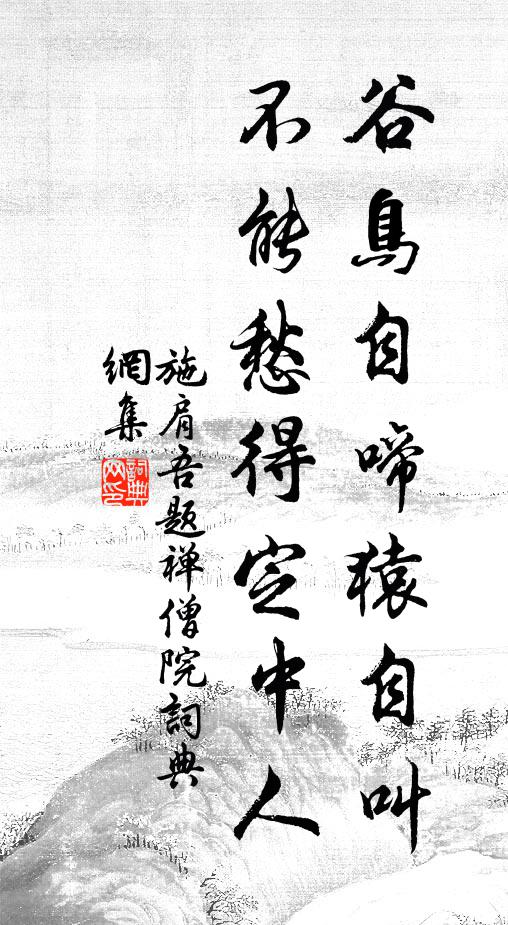 谷鳥自啼猿自叫
不能愁得定中人
施肩吾題禅僧院詞典
網集
詞典
网印